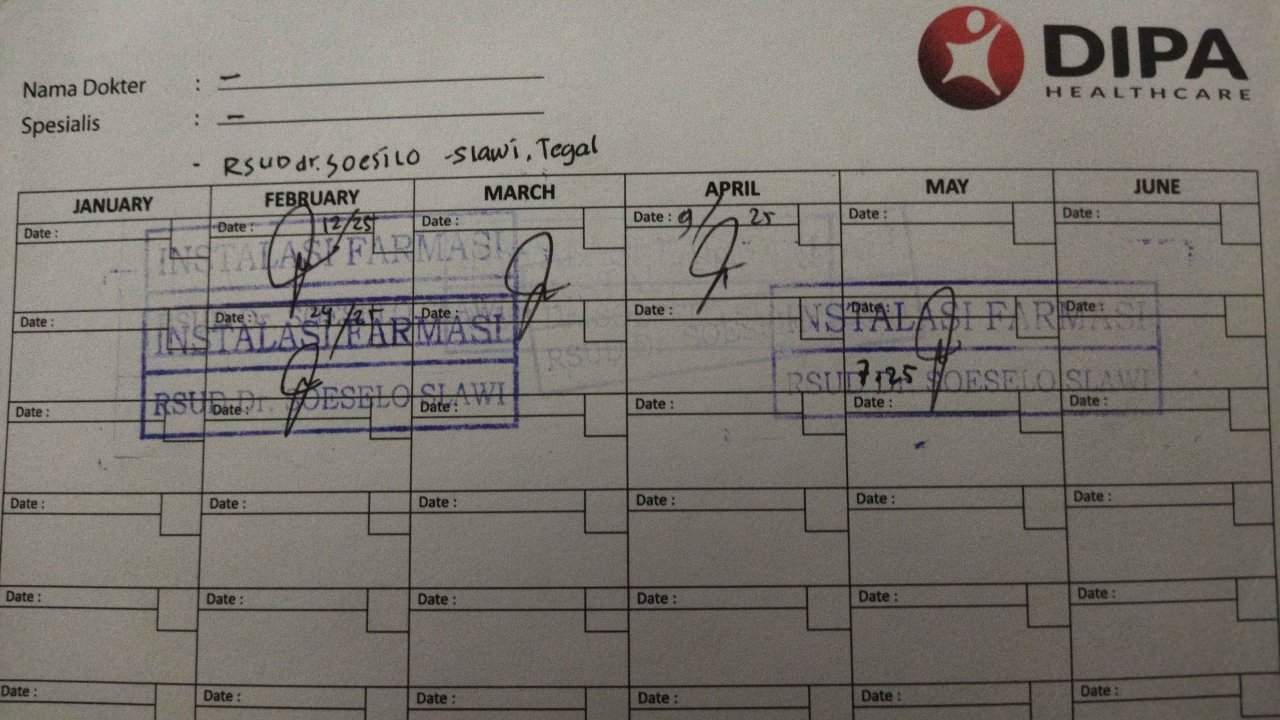 DIPA
HEALTHCARE
Nama Dokter : –
Spesialis : –
- RSUD dr. SOESILO - Slawi, Tegal
JANUARY FEBRUARY MARCH APRIL MAY JUNE
Date : Date : 12/25 Date : Date : 9/25 Date : Date :
INSTALASI FARMASI
Date : Date : 24/25 Date : Date : Date : Date :
INSTALASI FARMASI INSTALASI FARMASI
7/25
RSUD Dr. SOESELO SLAWI RSUD Dr. SOESELO SLAWI
Date : Date : Date : Date : Date : Date :
Date : Date : Date : Date : Date : Date :
Date : Date : Date : Date : Date : Date :
Date : Date : Date : Date : Date : Date :